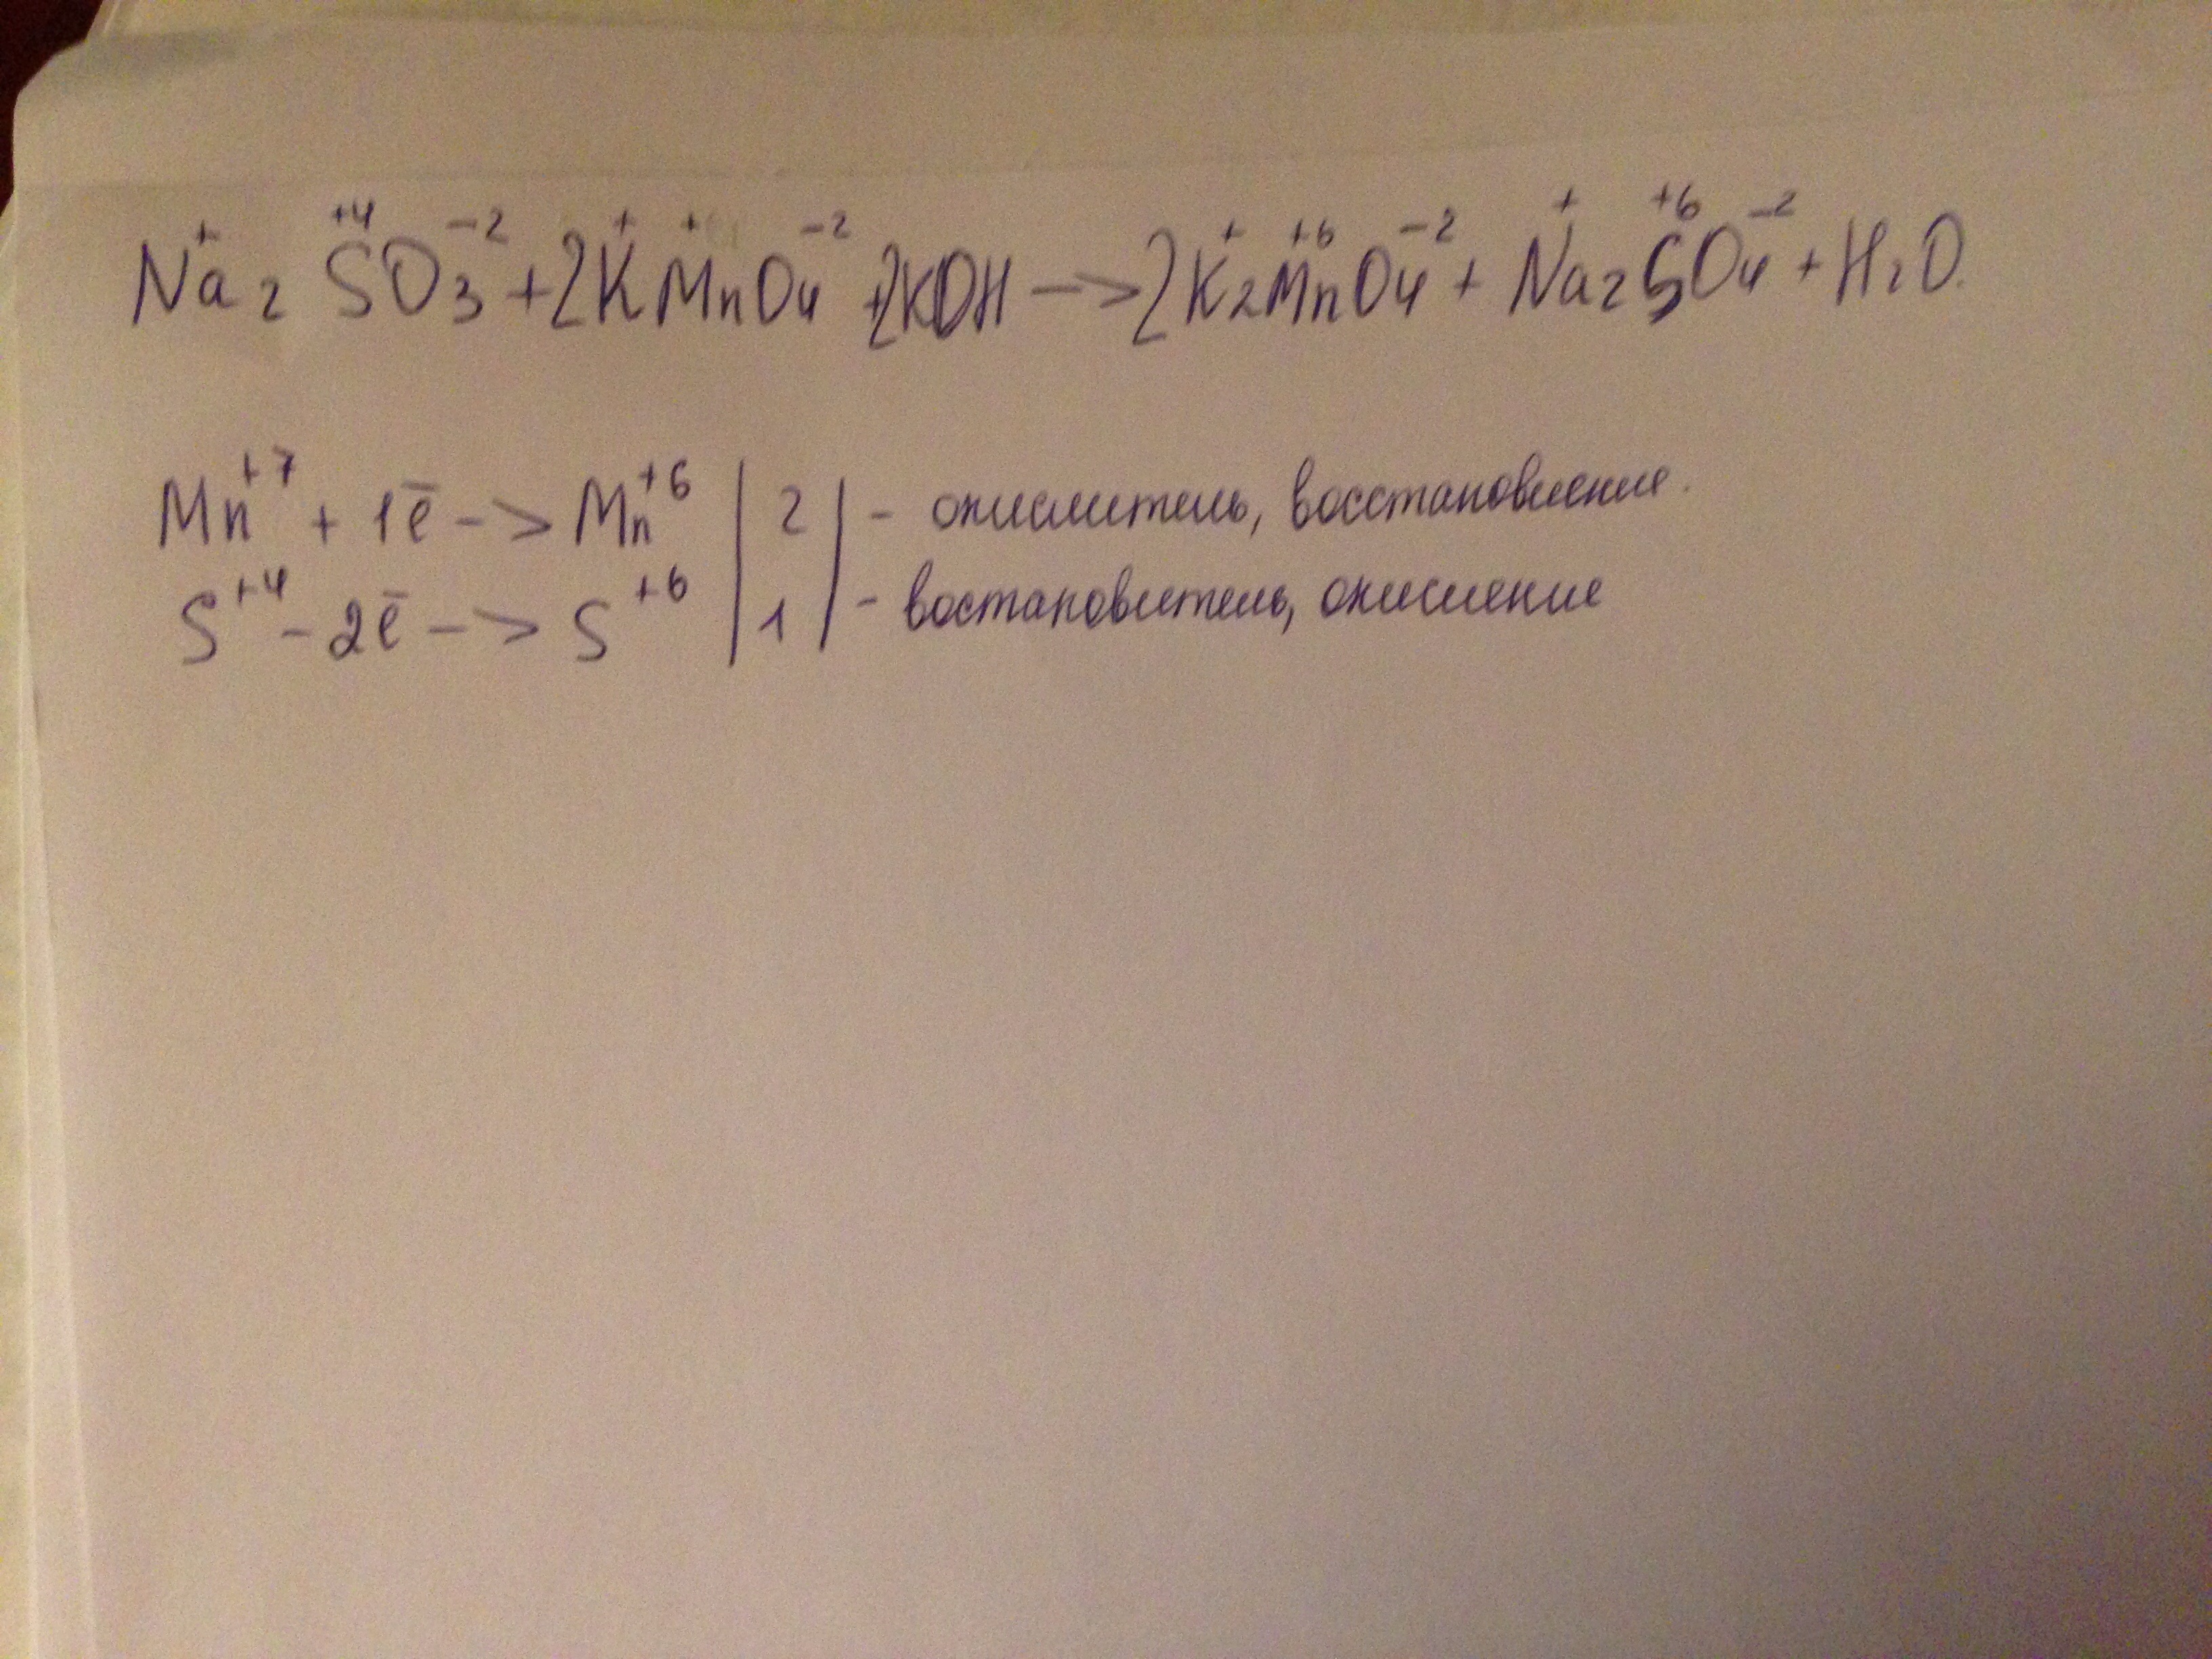 Na₂⁺S⁺⁴O₃⁻² + 2K⁺Mn⁺O₄⁻² + 2KOH –> 2K₂⁺Mn⁺⁶O₄⁻² + Na₂⁺S⁺⁶O₄⁻² + H₂O.
Mn⁺⁷ + 1ē –> Mn⁺⁶ | 2 | – окислитель, восстановление.
S⁺⁴ – 2ē –> S⁺⁶ | 1 | – востановитель, окисление